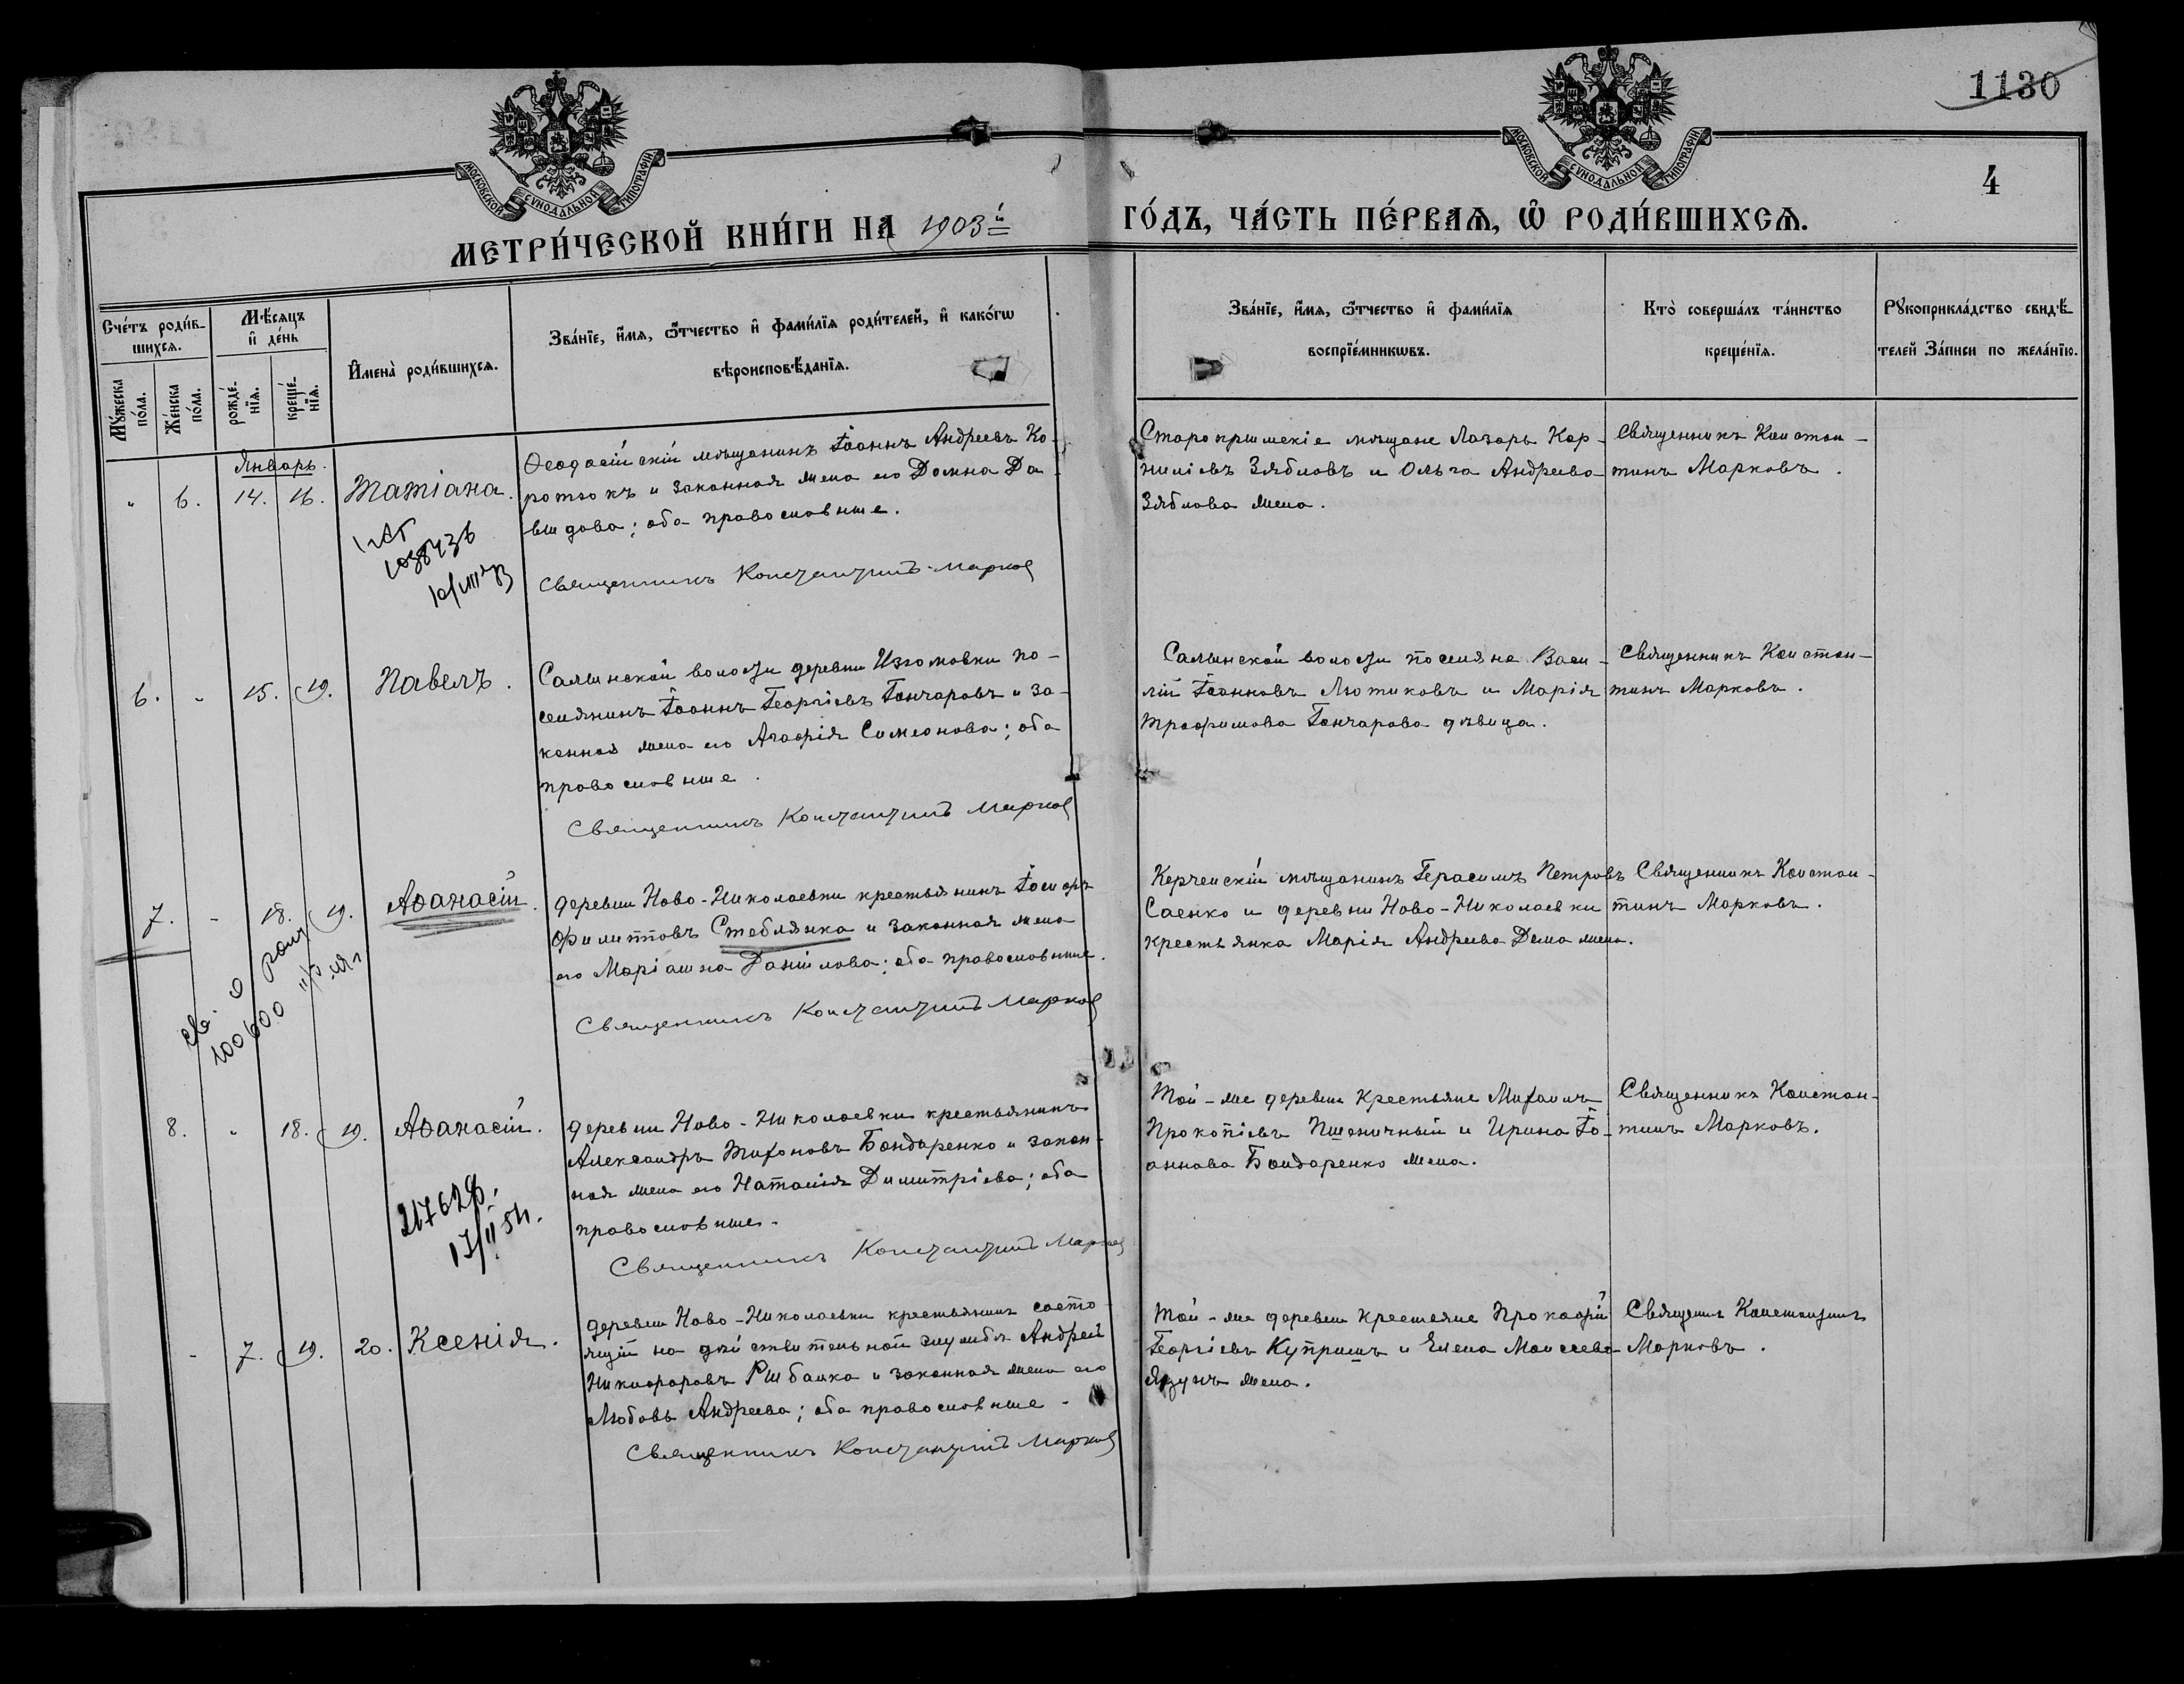 1130
4
МОСКОВСКОЙ СѴНОДАЛЬНОЙ ТИПОГРАФІИ
МОСКОВСКОЙ СѴНОДАЛЬНОЙ ТИПОГРАФІИ
МЕТРИ́ЧЕСКОЙ КНИ́ГИ НА 1903й ГО́ДЪ, ЧА́СТЬ ПЕ́РВАѦ, Ѡ҆ РОДИ́ВШИХСѦ.
Сче́тъ роди́в-
шихсѧ.
Мꙋ́жеска по́ла.
Же́нска по́ла.
Мѣ́сѧцъ и҆ де́нь
рожде́-
нїѧ.
креще́-
нїѧ.
И҆мена̀ роди́вшихсѧ.
Зва́нїе, и҆́мѧ, ѻ҆́тчество и҆ фами́лїѧ роди́телей, и҆ како́гѡ
вѣроисповѣ́данїѧ.
Зва́нїе, и҆́мѧ, ѻ҆́тчество и҆ фами́лїѧ
воспрїе́мникѡвъ.
Кто̀ соверша́лъ та́инство
креще́нїѧ.
Рꙋкоприкла́дство свидѣ́-
телей За́писи по жела́нїю.
Январь.
" 6. 14. 16. Татіана.
Ѳеодосійскій мѣщанинъ Іоаннъ Андреевъ Ко-
ротокъ и законная жена его Домна Да-
видова; оба православные.
Священникъ Константинъ Марков
Старокрымскіе мѣщане Лазарь Кор-
ниліевъ Зябловъ и Ольга Андреева
Зяблова жена.
Священникъ Констан-
тинъ Марковъ.
6. " 15. 19. Павелъ.
Салынской волости деревни Изюмовки по-
селянинъ Іоаннъ Георгіевъ Гончаровъ и за-
конная жена его Агафія Симеонова; оба
православные.
Священникъ Константинъ Марков
Салынской волости поселяне Васи-
лій Іоанновъ Лютиковъ и Марія
Трофимова Гончарова дѣвица.
Священникъ Констан-
тинъ Марковъ.
7. " 18. 19. Аѳанасій.
деревни Ново-Николаевки крестьянинъ Іосифъ
Филипповъ Стеблянка и законная жена
его Маріамна Даніилова; оба православные.
Священникъ Константинъ Марков
Керченскій мѣщанинъ Герасимъ Петровъ
Саенко и деревни Ново-Николаевки
крестьянка Марія Андреева Дема жена.
Священникъ Констан-
тинъ Марковъ.
св. о рож
100600
8. " 18. 19. Аѳанасій.
217628.
17/II 54.
деревни Ново-Николаевки крестьянинъ
Александръ Тихоновъ Бондаренко и закон-
ная жена его Наталія Димитріева; оба
православные.
Священникъ Константинъ Марков
Той-же деревни крестьяне Михаилъ
Прокопіевъ Пшеничный и Ирина Іо-
аннова Бондаренко жена.
Священникъ Констан-
тинъ Марковъ.
" 7. 19. 20. Ксенія.
деревни Ново-Николаевки крестьянинъ состо-
ящій на дѣйствительной службѣ Андрей
Никифоровъ Рыбалка и законная жена его
Любовь Андреева; оба православные.
Священникъ Константинъ Марков
Той-же деревни крестьяне Прокофій
Георгіевъ Купришъ и Елена Моисеева
Язунъ жена.
Священ. Константинъ
Марковъ.